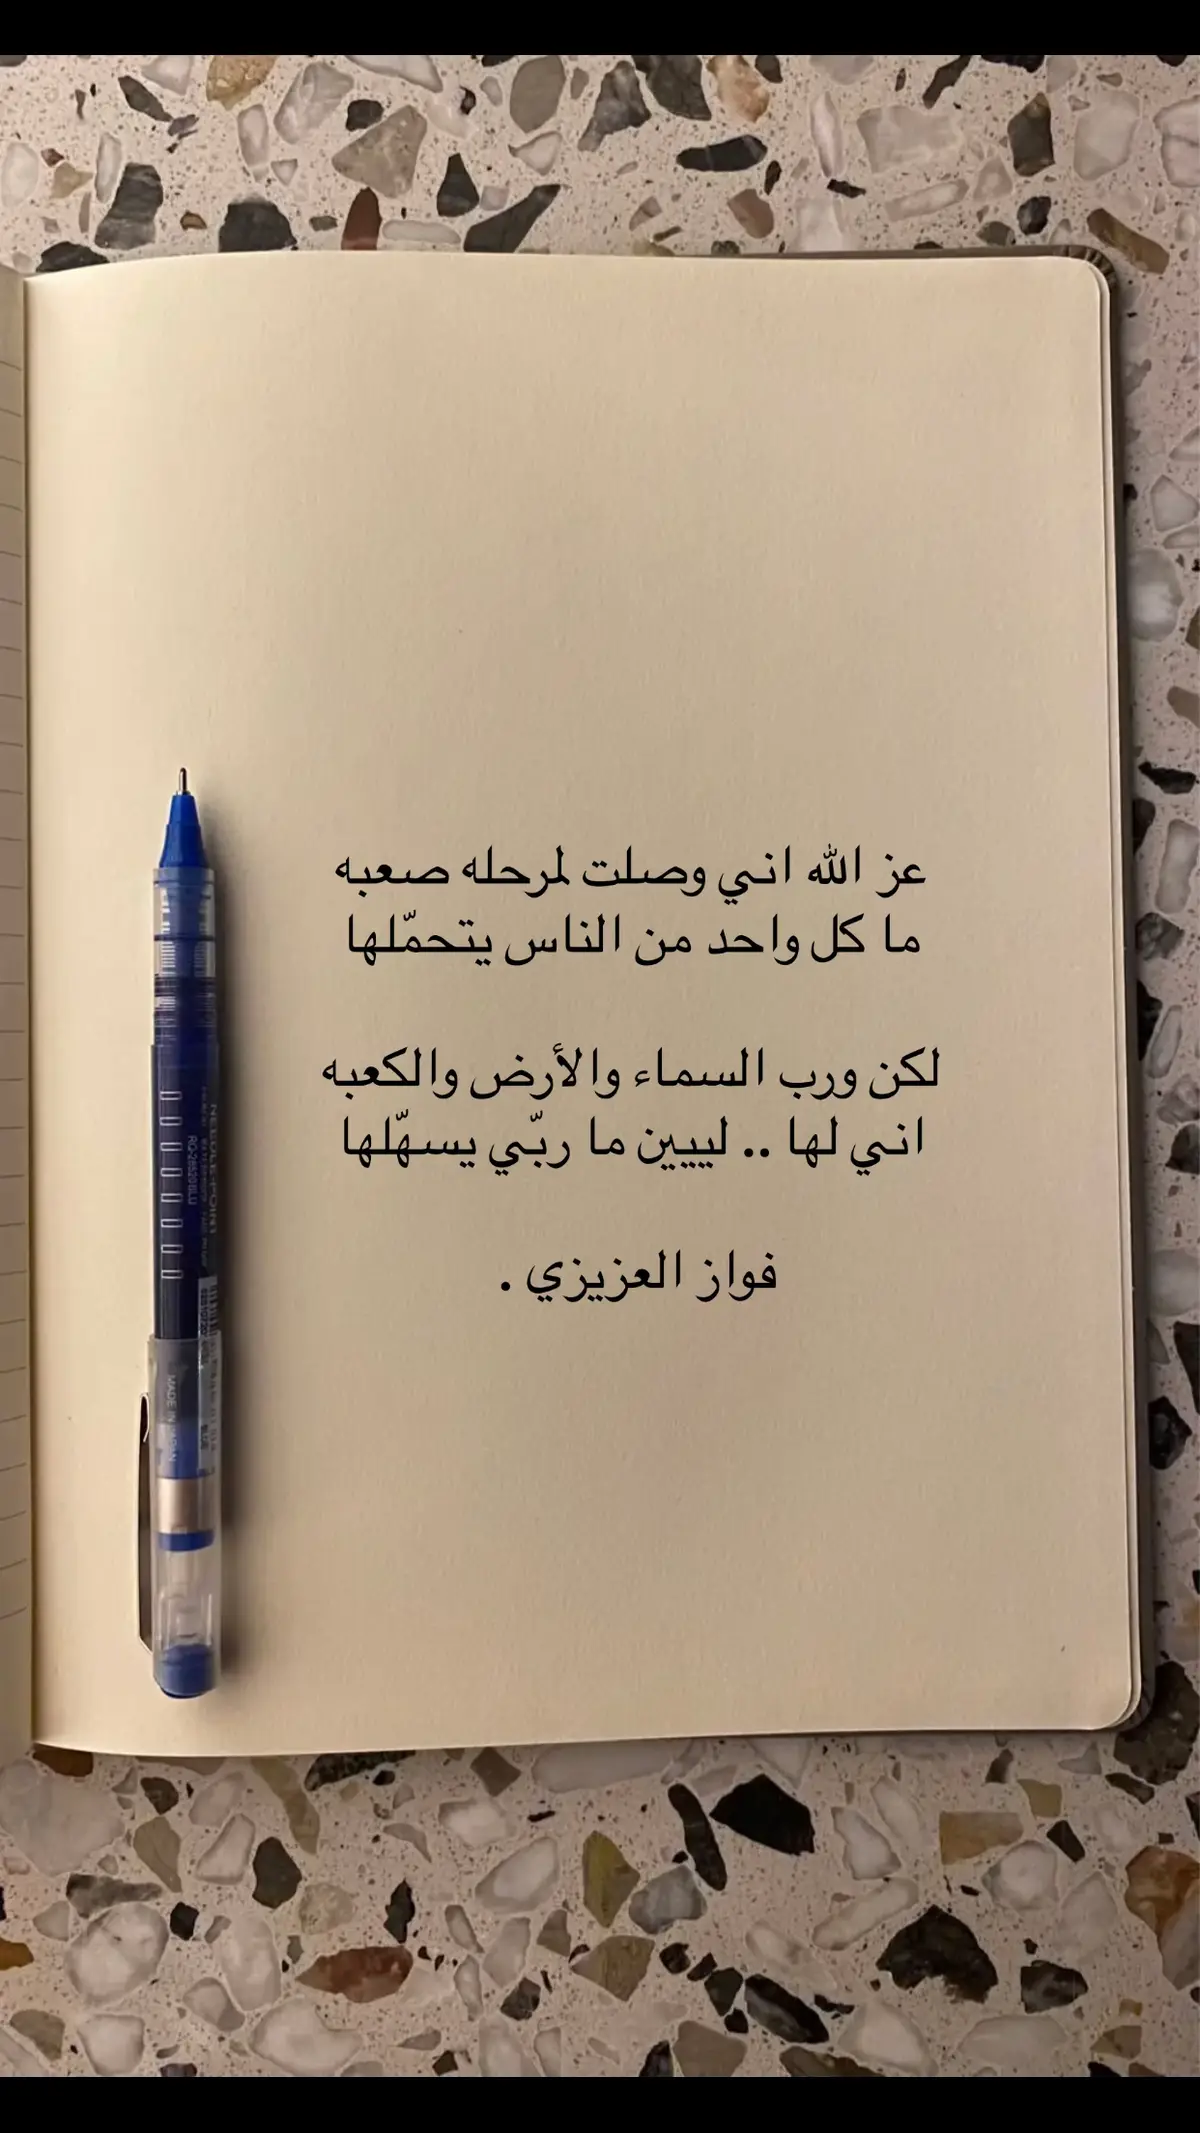 عز الله اني وصلت لمرحله صعبه
ما كل واحد من الناس يتحمّلها
لكن ورب السماء والأرض والكعبه
اني لها .. ليييين ما ربّي يسهّلها
فواز العزيزي .
NEEDLE-POINT
MADE IN JAPAN